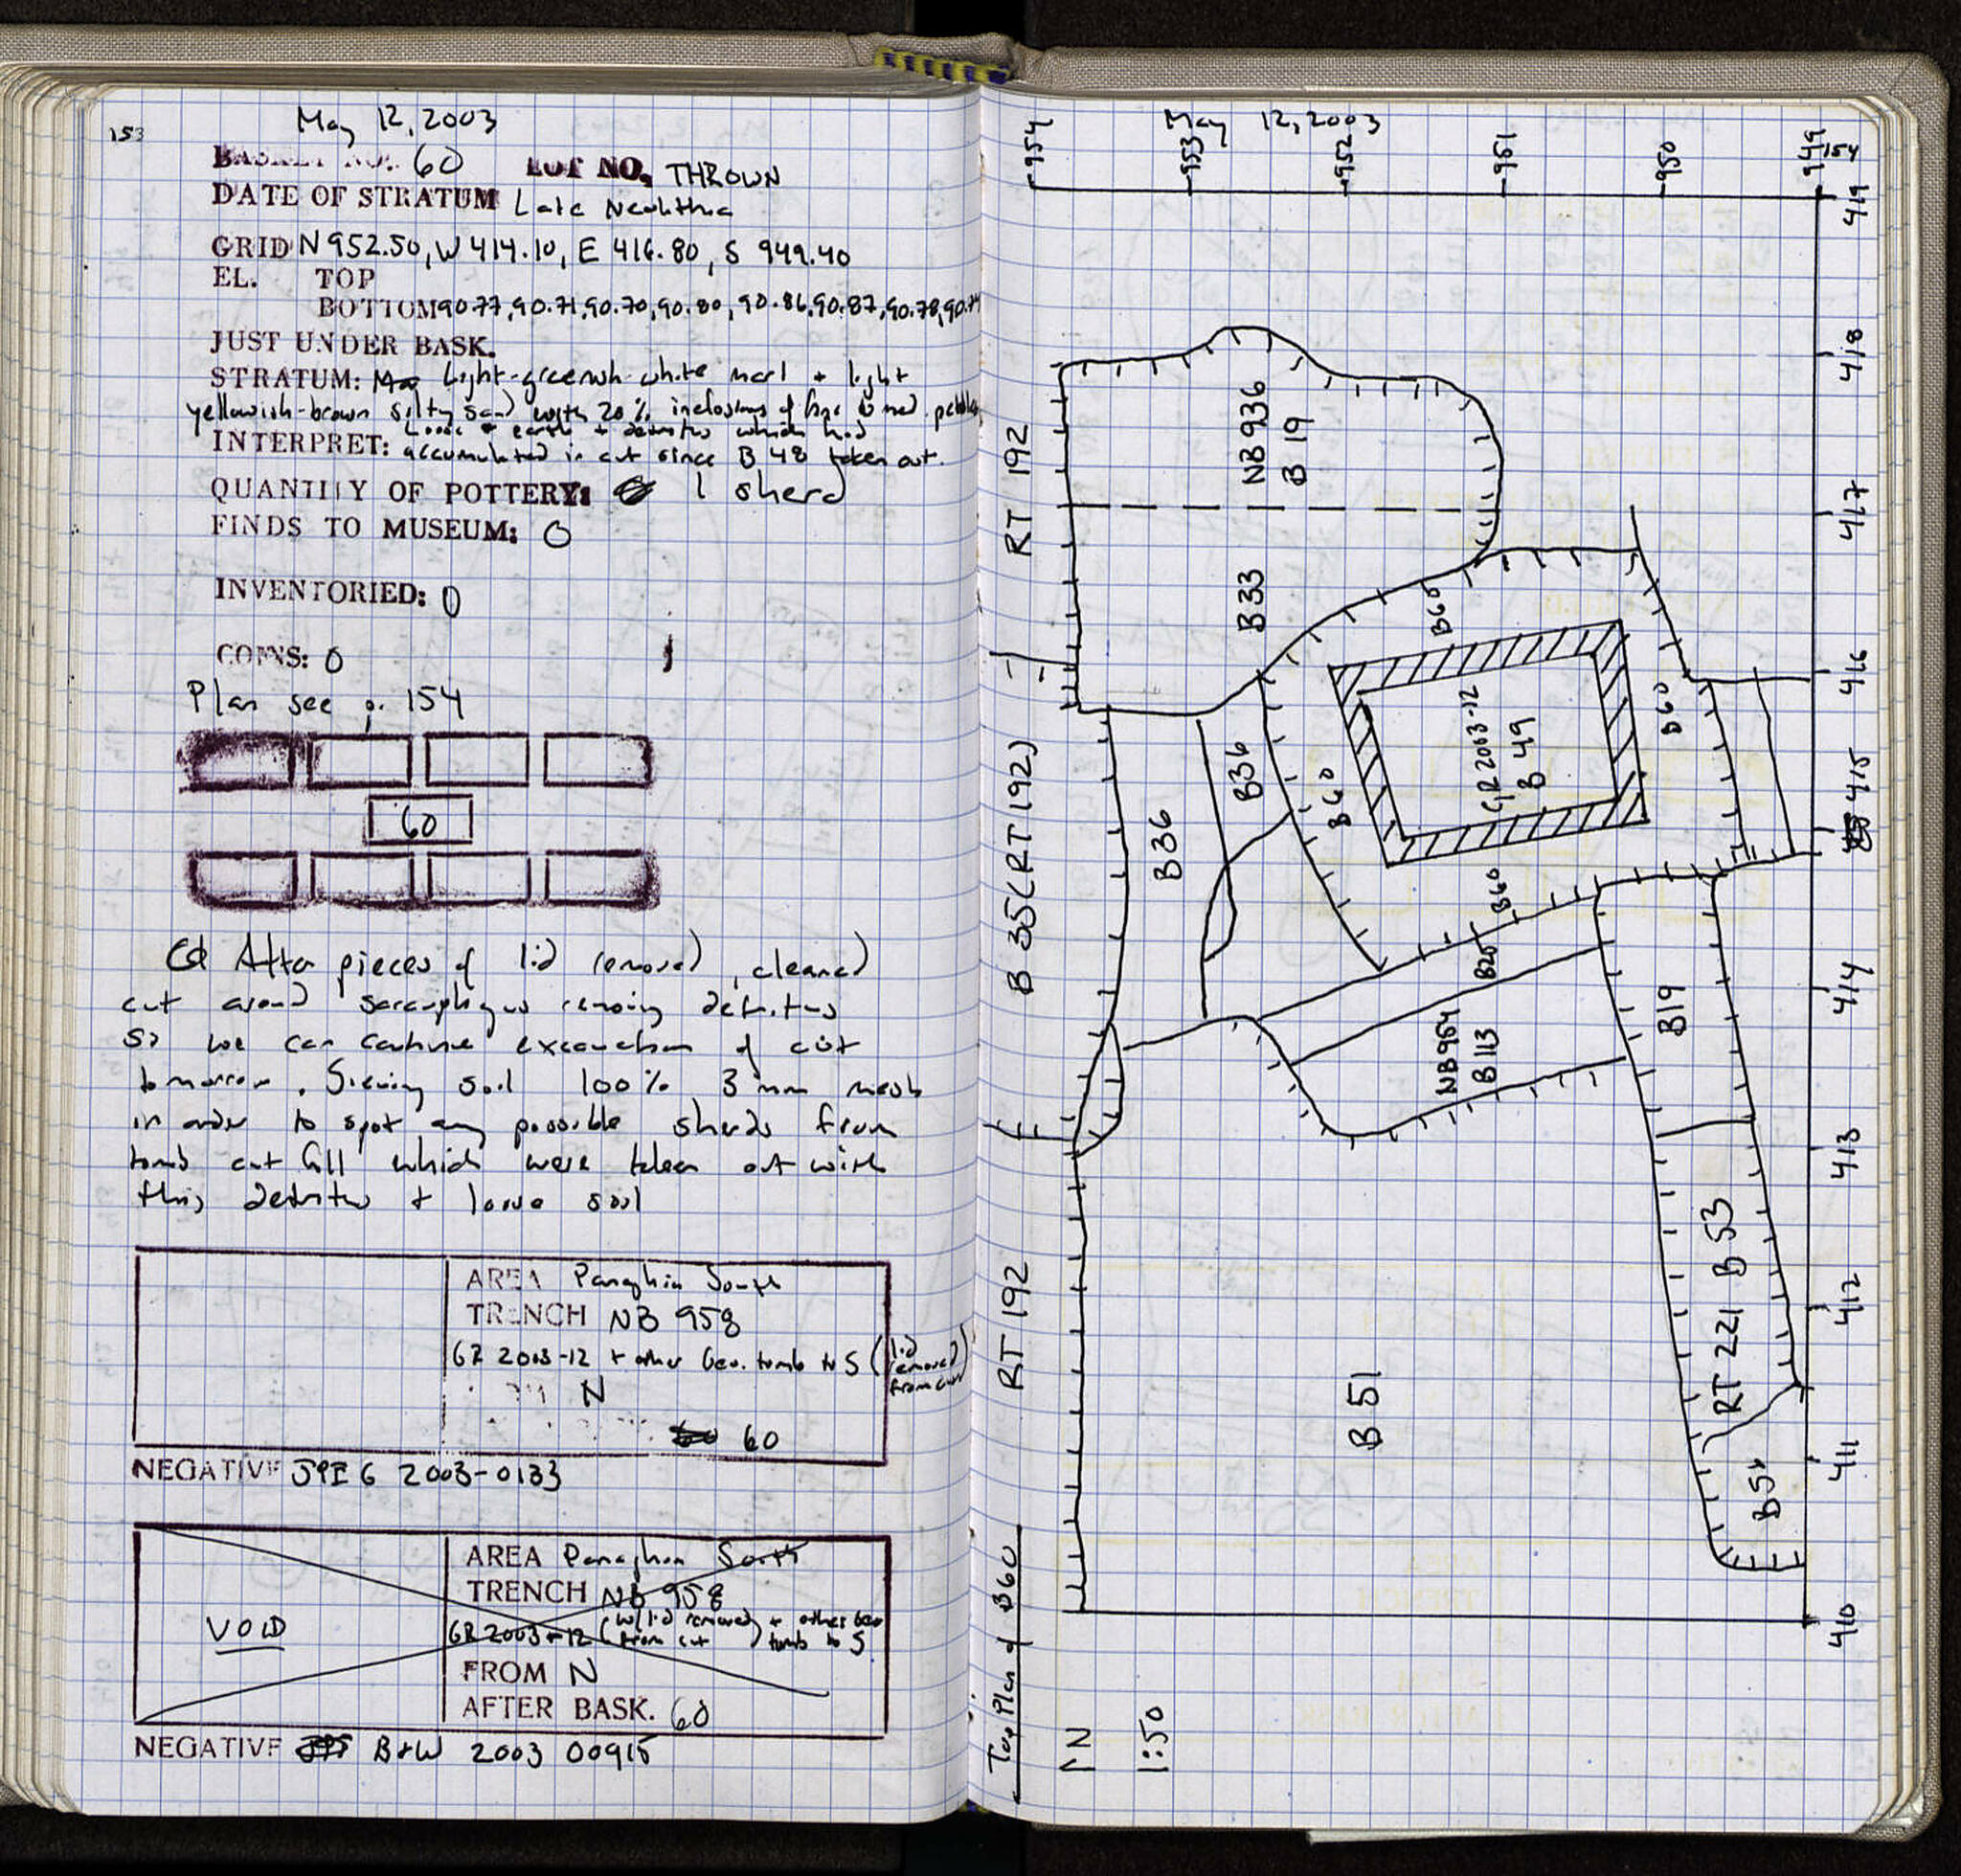 153
May 12, 2003
BASKET NO. 60 LOT NO. THROWN
DATE OF STRATUM Late Neolithic
GRID N 952.50, W 414.10, E 416.80, S 949.40
EL. TOP
BOTTOM 90.77, 90.71, 90.70, 90.80, 90.86, 90.87, 90.78,
JUST UNDER BASK.
STRATUM: Light-greenish-white marl + light
yellowish-brown silty sand with 20% inclusions of fine to med. pebbles
Loose earth + detritus which had
INTERPRET: accumulated in cut since B 48 taken out.
QUANTITY OF POTTERY: 1 sherd
FINDS TO MUSEUM: 0
INVENTORIED: 0
COINS: 0
Plan see p. 154
60
After pieces of lid removed, cleaned
cut around sarcophagus removing detritus
so we can continue excavation of cist
tomorrow. Sieving soil 100% 3 mm mesh
in order to spot any possible sherds from
tomb cut fill which were taken out with
this detritus + loose soil
AREA Panaghia South
TRENCH NB 958
GR 2003-12 + other Geo. tomb to S (lid removed from cut)
N
60
NEGATIVE JPEG 2003-0133
VOID
AREA Panaghia South
TRENCH NB 958
GR 2003-12 (w/ lid removed from cut) + other Geo tomb to S
FROM N
AFTER BASK. 60
NEGATIVE B+W 2003 00915
May 12, 2003
154
954
953
952
951
950
949
419
418
417
416
415
414
413
412
411
410
RT 192
NB 936
B 19
B33
B60
B 35 (RT 192)
B36
B36
B60
GR 2003-12
B 49
B60
B60
B20
NB 954
B 113
B19
RT 192
B 51
RT 221 B 53
Top Plan of B60
N
1:50